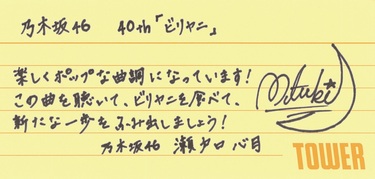 乃木坂46 40th「ビリヤニ」
楽しくポップな曲調になっています!
この曲を聴いて、ビリヤニを食べて、
新たな一歩をふみ出しましょう!
乃木坂46 瀬戸口 心月
Mitsuki
TOWER